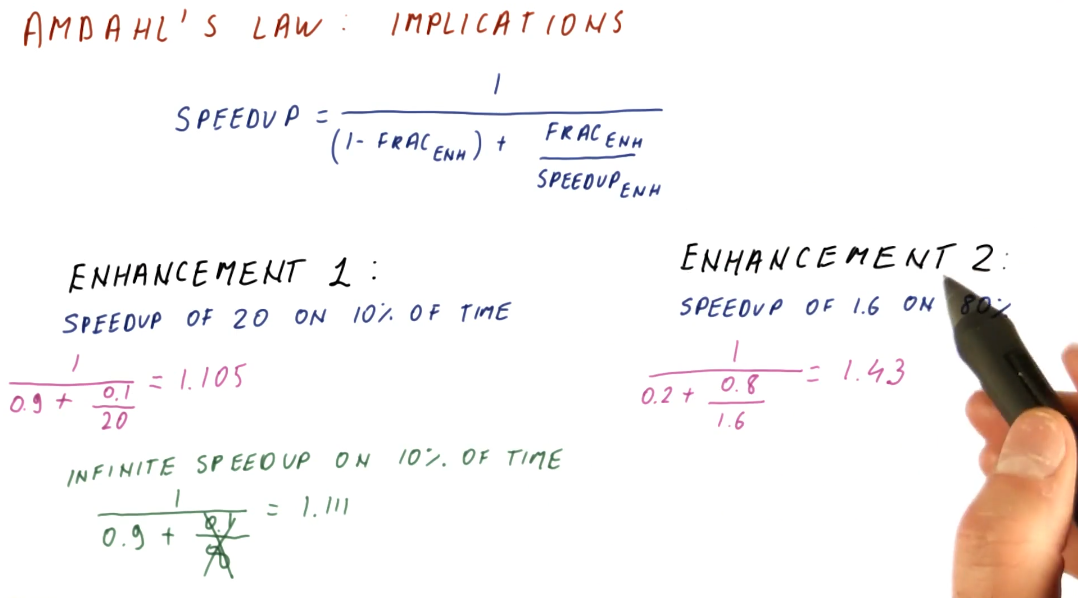 AMDAHL'S LAW: IMPLICATIONS
SPEEDUP = 1 / ((1 - FRAC_ENH) + FRAC_ENH / SPEEDUP_ENH)
ENHANCEMENT 1:
SPEEDUP OF 20 ON 10% OF TIME
1 / (0.9 + 0.1 / 20) = 1.105
INFINITE SPEEDUP ON 10% OF TIME
1 / (0.9 + 0.1 / ∞) = 1.111
ENHANCEMENT 2:
SPEEDUP OF 1.6 ON 80%
1 / (0.2 + 0.8 / 1.6) = 1.43